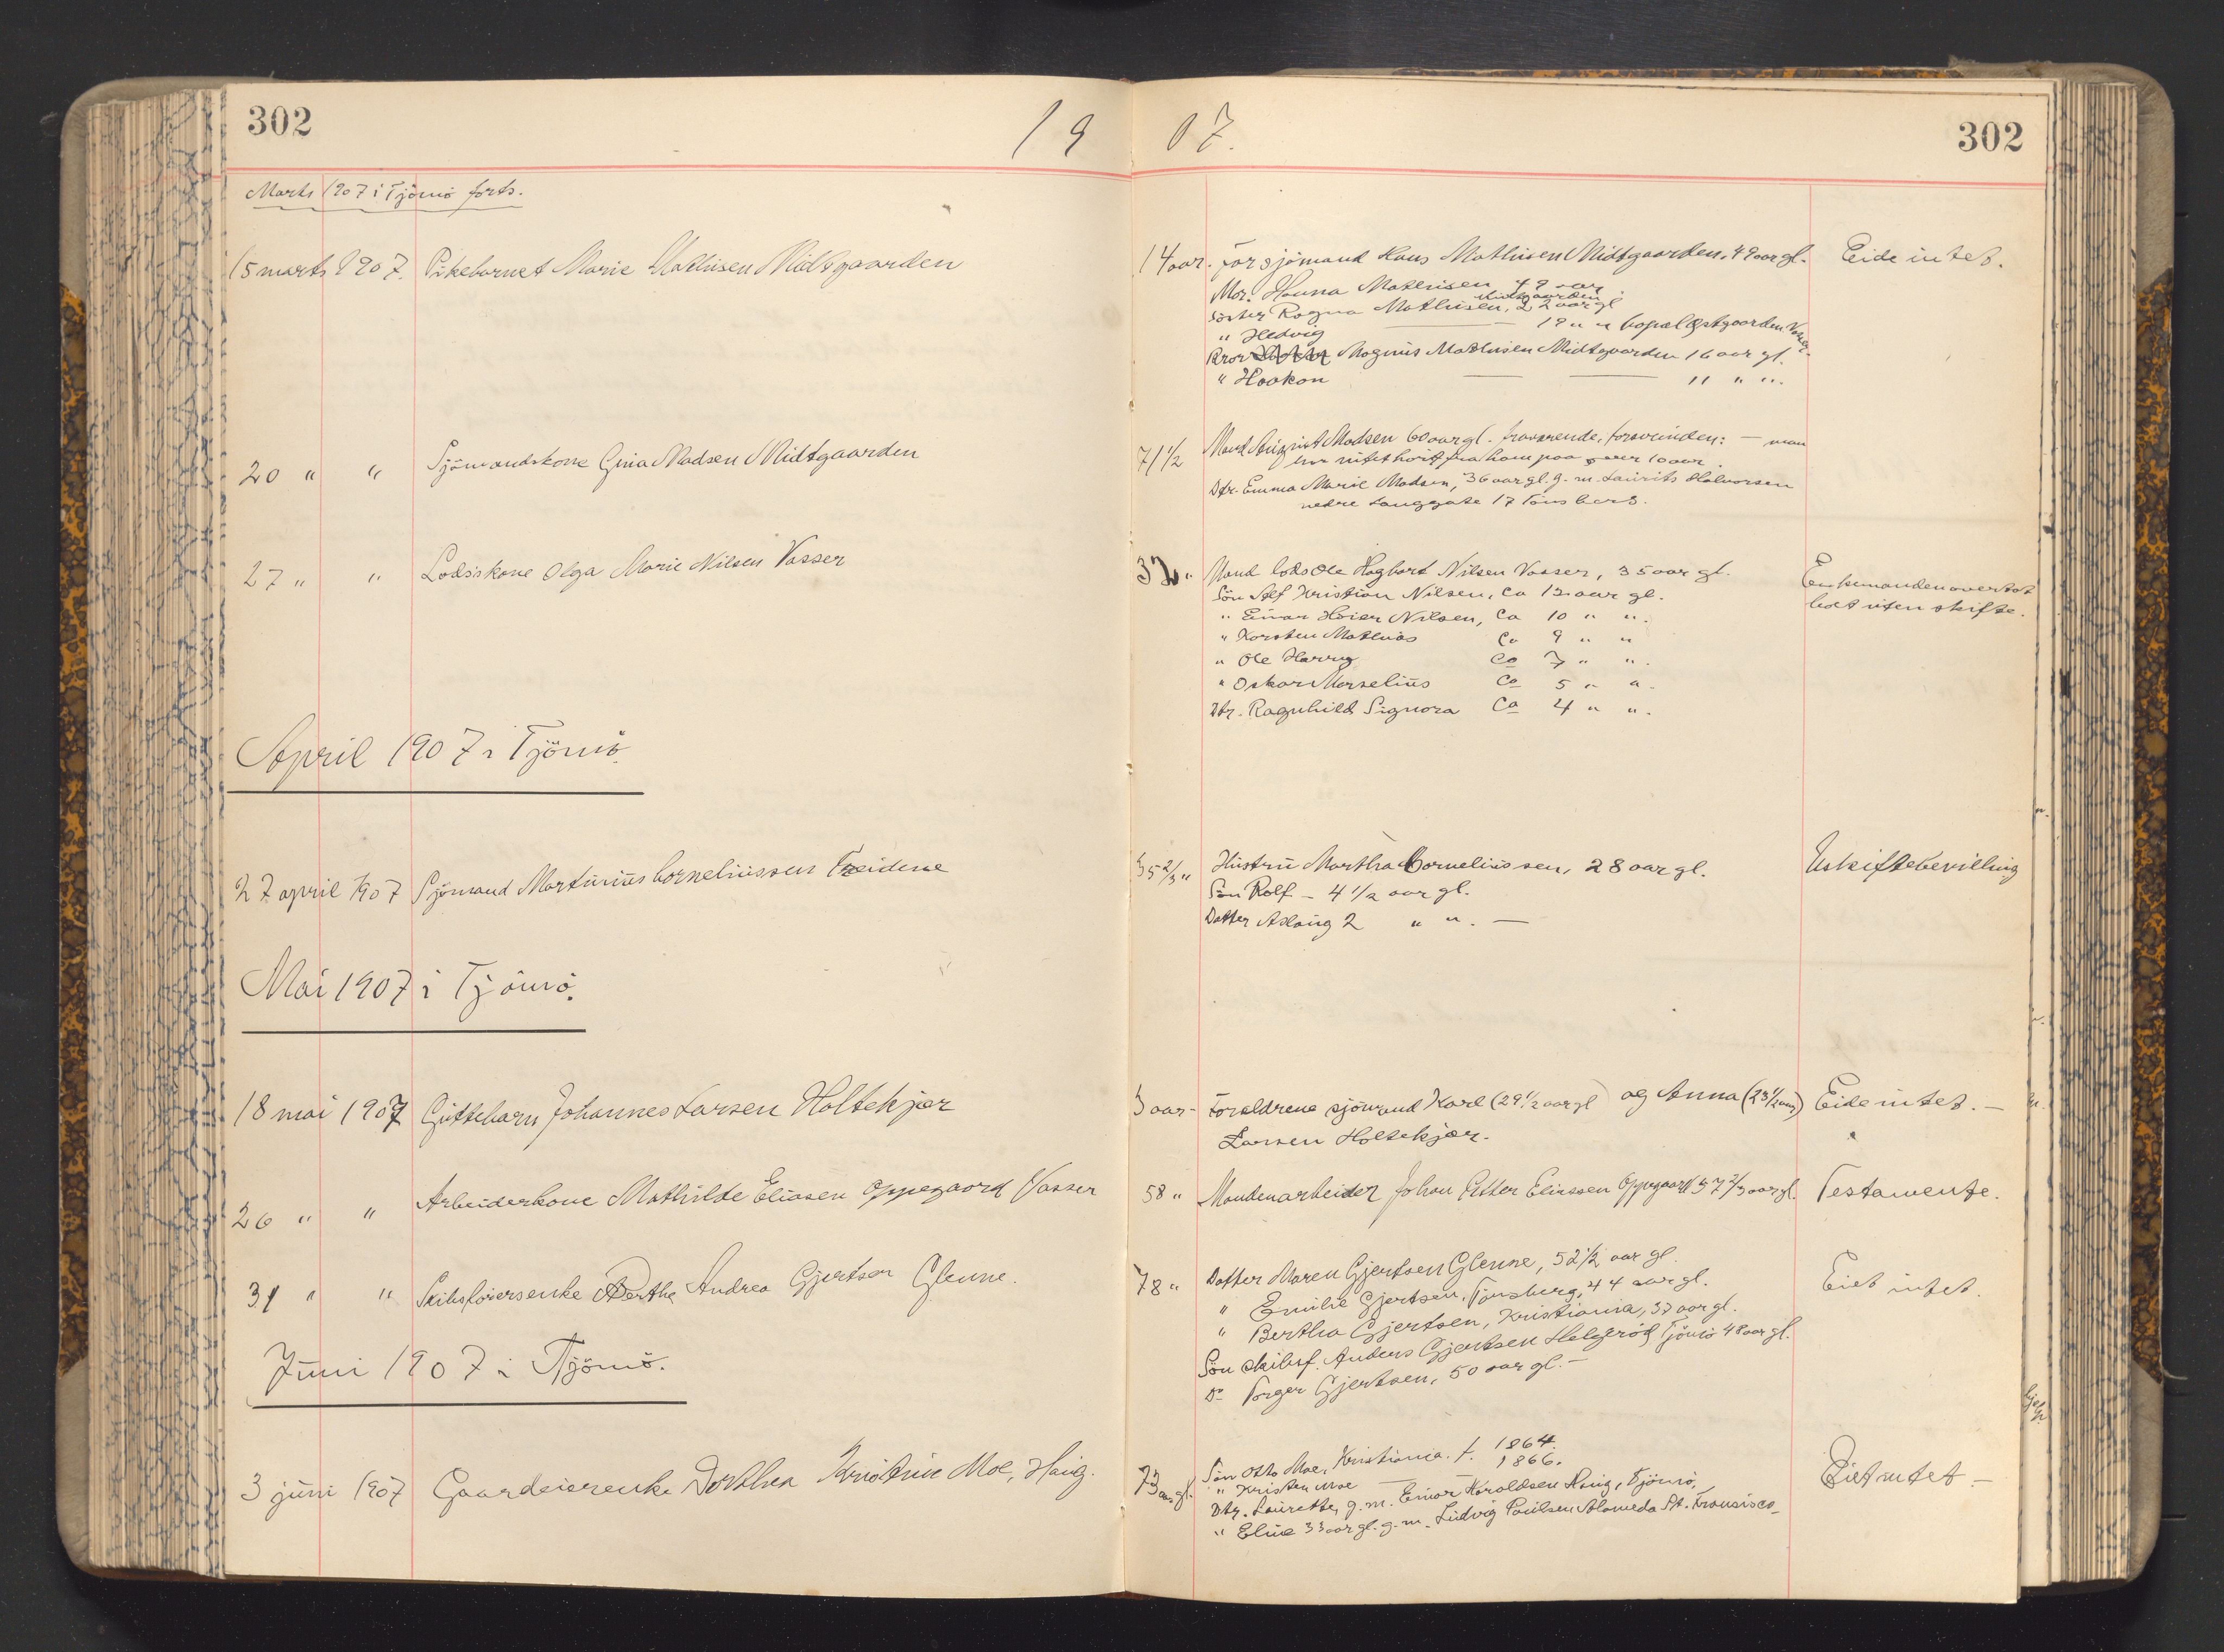 302
1907.
302
Marts 1907 i Tjömö forts.
15 marts 1907. Pikebarnet Marie Mathisen Midtgaarden
14 aar. Far sjömand Hans Mathisen Midtgaarden, 49 aar gl. Eide intet.
Mor. Hanna Mathisen 49 aar
Söster Ragna Mathisen, Midtgaarden 22 aar gl
" Hedvig — 19 " " bopæl Østgaarden Vasser
Bror Magnus Mathisen Midtgaarden 16 aar gl.
" Haakon — — 11 " ".
20 " " Sjömandskone Gina Madsen Midtgaarden
71 1/2 Mand August Madsen 60 aar gl. fraværende, forsvunden: — man
har intet hört fra ham paa over 10 aar.
Dtr. Emma Marie Madsen, 36 aar gl. g. m. Laurits Halvorsen
nedre Langgate 17 Tönsberg.
27 " " Lodskone Olga Marie Nilsen Vasser
32 " Mand lods Ole Hagbart Nilsen Vasser, 35 aar gl. Enkemanden overtok
Sön Alf Kristian Nilsen, ca 12 aar gl. boet uten skifte.
" Einar Höier Nilsen, ca 10 " ".
" Karsten Mathias ca 9 " "
" Ole Harry ca 7 " ".
" Oskar Marselius ca 5 " ".
Dtr. Ragnhild Signora ca 4 " ".
April 1907 i Tjömö.
27 april 1907 Sjömand Martinius Corneliussen Treidene
35 2/3 " Hustru Martha Corneliussen, 28 aar gl. Uskiftebevilling
Sön Rolf - 4 1/2 aar gl.
Datter Aslaug 2 " ". —
Mai 1907 i Tjömö.
18 mai 1907 Guttebarn Johannes Larsen Holtekjær
3 aar - Forældrene sjömand Karl (29 1/2 aar gl) og Anna (23 1/2 aar) Eide intet. —
Larsen Holtekjær.
26 " " Arbeiderkone Mathilde Eliasen Oppegaard Vasser
58 " Manden arbeider Johan Petter Eliassen Oppegaard 57 2/3 aar gl. Testamente.
31 " " Skibsförerenke Berthe Andrea Gjertsen Glenne.
78 " Datter Maren Gjertsen Glenne, 52 1/2 aar gl. Eiet intet.
" Emilie Gjertsen, Tönsberg, 44 aar gl.
" Bertha Gjertsen, Kristiania, 37 aar gl.
Sön skibsf. Anders Gjertsen Helgeröd Tjömö 48 aar gl.
Do Torger Gjertsen, 50 aar gl. —
Juni 1907 i Tjömö.
3 juni 1907 Gaardeierenke Dorthea Kristine Moe, Haug.
73 aar gl. Sön Otto Moe, Kristiania. f. 1864. Eiet intet —
" Kristen Moe — 1866.
Dtr. Laurette, g. m. Einar Haraldsen Haug, Tjömö,
" Eline 33 aar gl. g. m. Ludvig Paulsen Alameda St. Fransisco